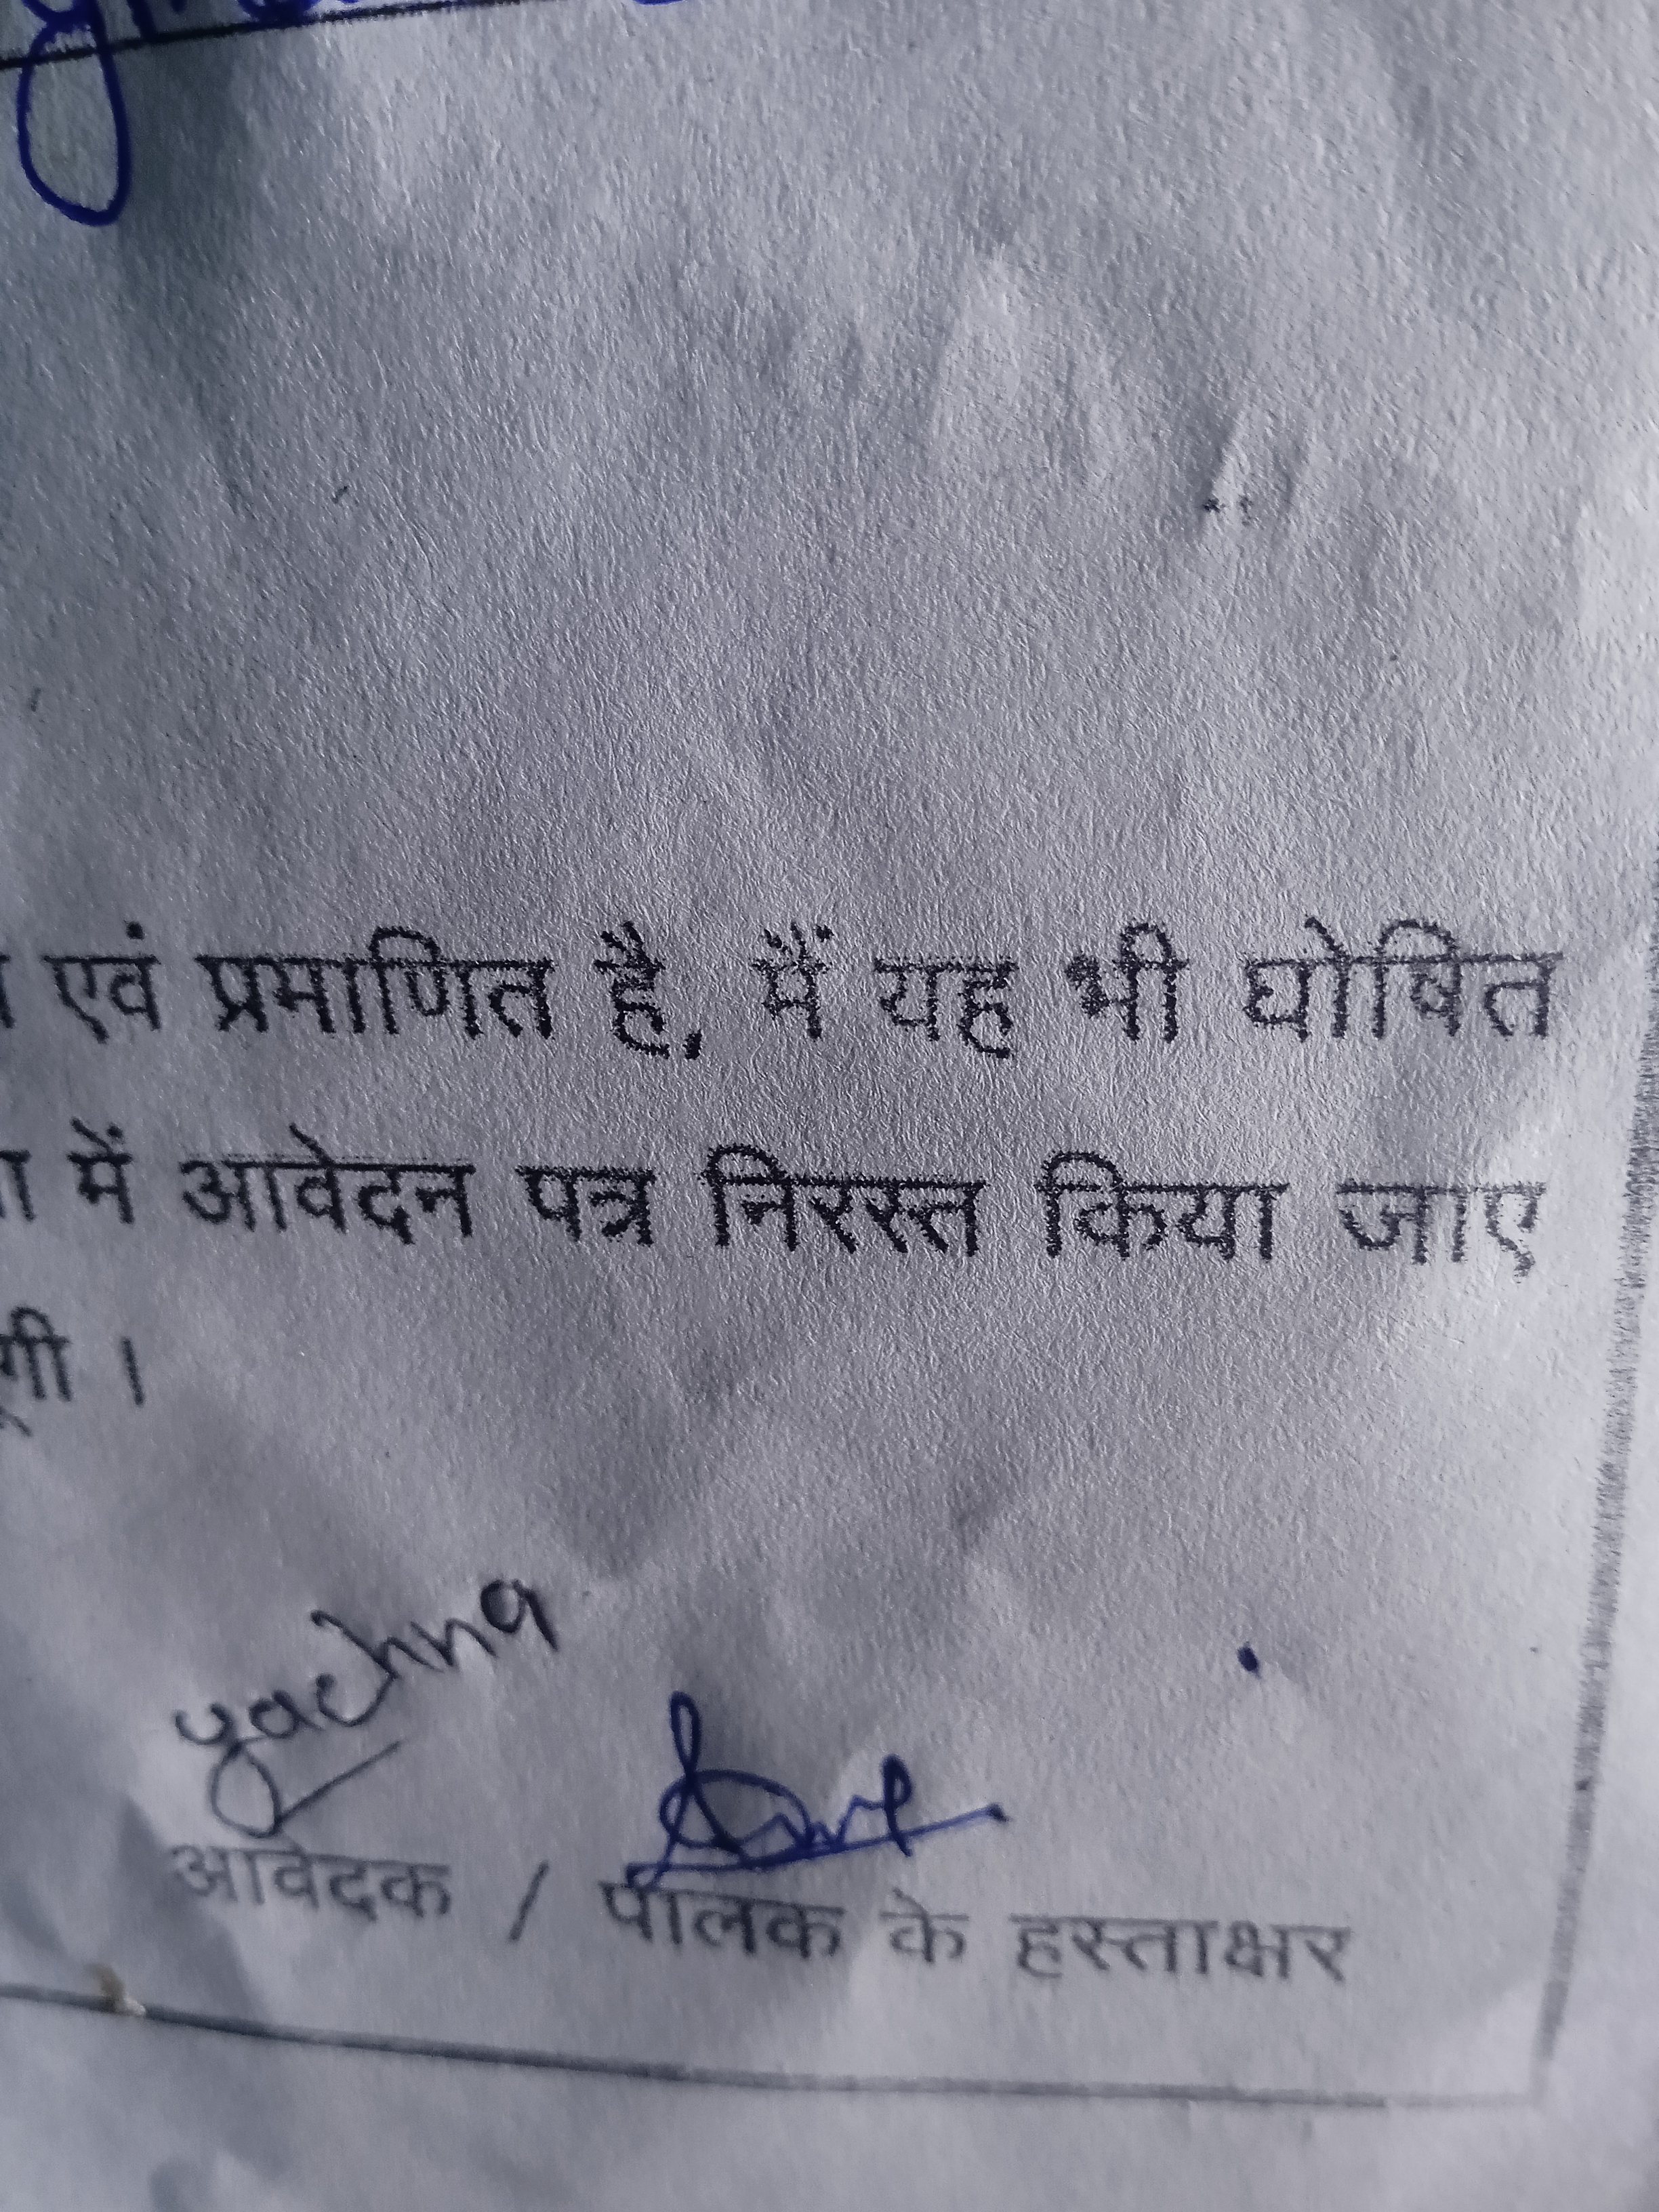 एवं प्रमाणित है, मैं यह भी घोषित
में आवेदन पत्र निरस्त किया जाए
yachna
आवेदक / पालक के हस्ताक्षर